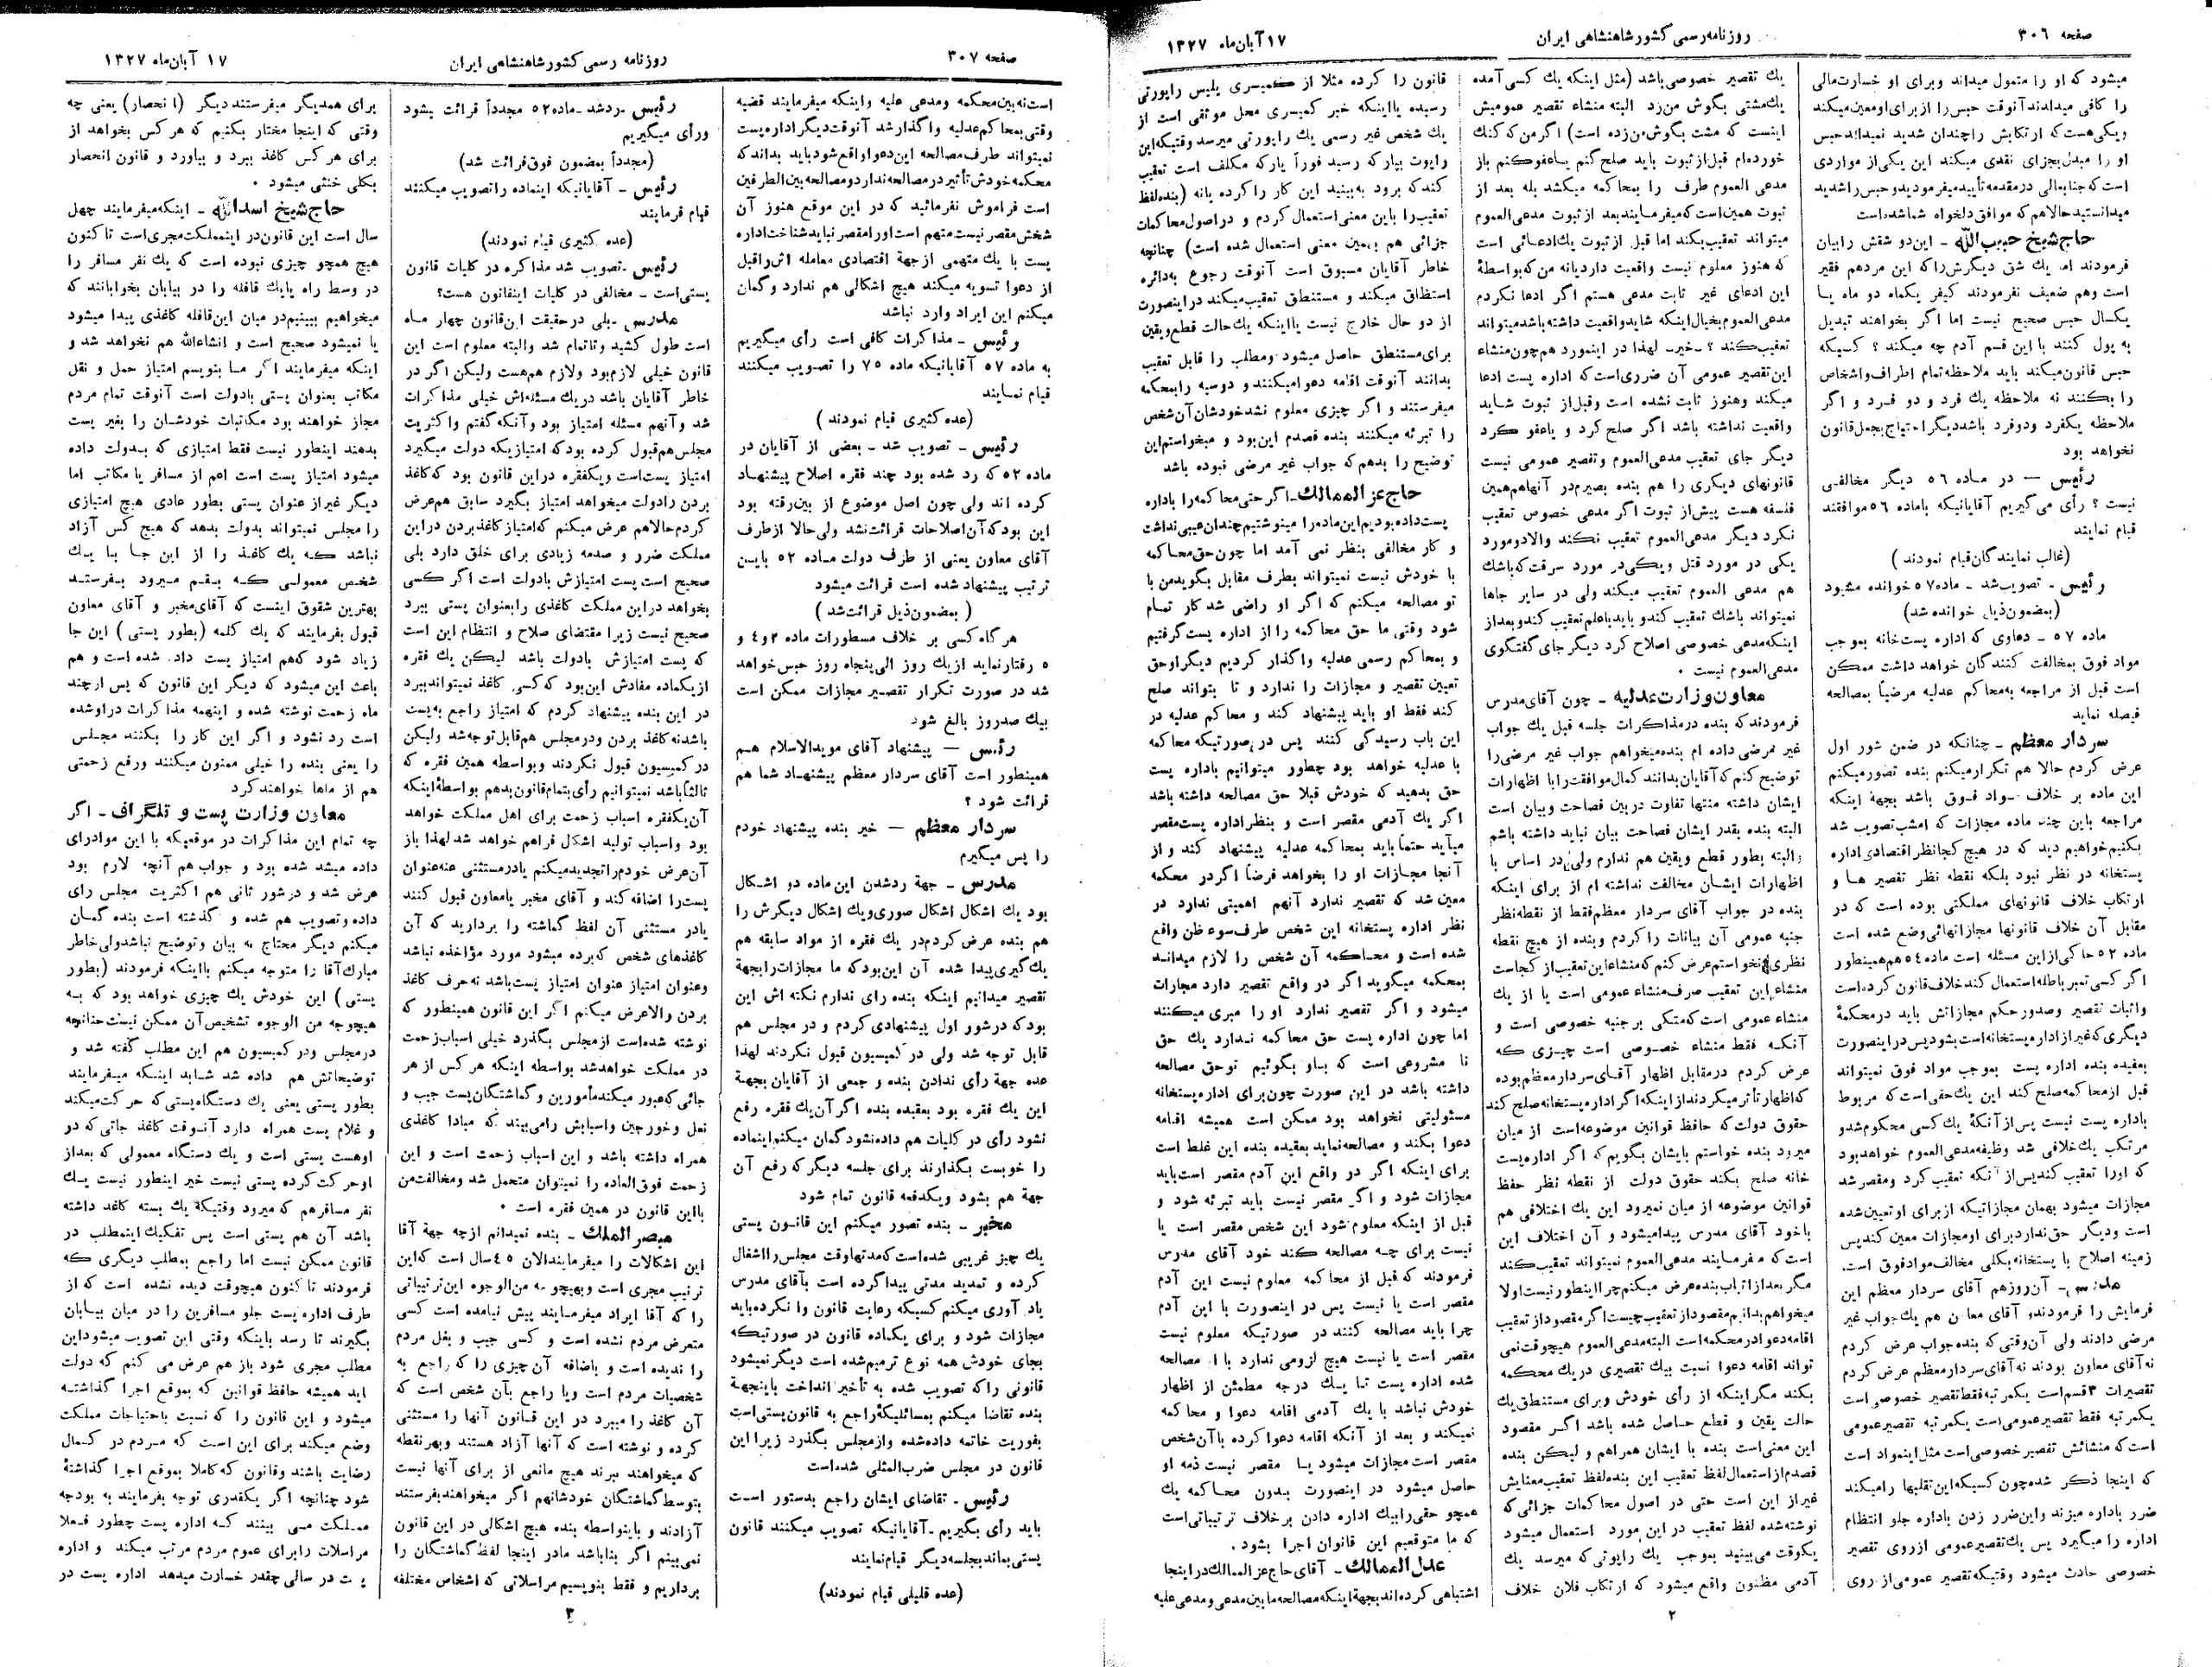 صفحه ۳۰۶
روزنامه رسمی کشور شاهنشاهی ایران
۱۷ آبان ماه ۱۳۲۷
میشود که او را متمول میداند و برای او خسارت مالی
را کافی میدانند آنوقت حبس را از برای او معین میکند
و یکی هست که ارتکابش را چندان شدید نمیداند حبس
او را مبدل بجزای نقدی میکند این یکی از مواردی
است که جنابعالی در مقدمه تأیید میفرمودید و حبس را شدید
میدانستید حالا هم که موافق دلخواه شما شده است
حاج شیخ حبیب الله - این دو شقش را بیان
فرمودند اما یک شق دیگرش را که این مردم هم فقیر
است وهم ضعیف نفرمودند کیفر یکماه دو ماه یا
یکسال حبس صحیح نیست اما اگر بخواهند تبدیل
به پول کنند با این قسم آدم چه میکند ؟ کسیکه
حبس قانون میکند باید ملاحظه تمام اطراف و اشخاص
را بکنند نه ملاحظه یک فرد و دو فرد و اگر
ملاحظه یکفرد و دو فرد باشد دیگر احتیاج بجعل قانون
نخواهد بود
رئیس — در ماده ۵۶ دیگر مخالفی
نیست ؟ رأی می گیریم آقایانیکه با ماده ۵۶ موافقتند
قیام نمایند
(غالب نمایندگان قیام نمودند )
رئیس - تصویب شد - ماده ۵۷ خوانده میشود
(بمضمون ذیل خوانده شد)
ماده ۵۷ - دعاوی که اداره پست خانه بموجب
مواد فوق بمخالفت کنندگان خواهد داشت ممکن
است قبل از مراجعه به محاکم عدلیه مرضیاً بمصالحه
فیصله نماید
سردار معظم - چنانکه در ضمن شور اول
عرض کردم حالا هم تکرار میکنم بنده تصور میکنم
این ماده بر خلاف مواد فوق باشد بجهة اینکه
مراجعه باین چند ماده مجازات که امشب تصویب شد
بکنیم خواهیم دید که در هیچ کجا نظر اقتصادی اداره
پستخانه در نظر نبود بلکه نقطه نظر تقصیر ها و
ارتکاب خلاف قانونهای مملکتی بوده است که در
مقابل آن خلاف قانونها مجازاتهائی وضع شده است
ماده ۵۲ حاکی از این مسئله است ماده ۵۴ هم همینطور
اگر کسی تمبر باطله استعمال کند خلاف قانون کرده است
واثبات تقصیر و صدور حکم مجازاتش باید در محکمهٔ
دیگری که غیر از اداره پستخانه است بشود پس در اینصورت
بعقیده بنده اداره پست بموجب مواد فوق نمیتواند
قبل از محاکمه صلح کند این یک حقی است که مربوط
باداره پست نیست پس از آنکه یک کسی محکوم شد و
مرتکب یک خلافی شد وظیفه مدعی العموم خواهد بود
که او را تعقیب کند پس از آنکه تعقیب کرد و مقصر شد
مجازات میشود بهمان مجازاتیکه از برای او تعیین شده
است و دیگر حق ندارد برای او مجازات معین کند پس
زمینه اصلاح با پستخانه بکلی مخالف مواد فوق است.
مدرس - آن روز هم آقای سردار معظم این
فرمایش را فرمودند و آقای معاون هم یک جواب غیر
مرضی دادند ولی آن وقتی که بنده جواب عرض کردم
نه آقای معاون بودند نه آقای سردار معظم عرض کردم
تقصیرات ۳ قسم است یکمرتبه فقط تقصیر خصوصی است
یکمرتبه فقط تقصیر عمومی است یکمرتبه تقصیر عمومی
است که منشائش تقصیر خصوصی است مثل اینمواد است
که اینجا ذکر شده چون کسیکه این تقلبها را میکند
ضرر باداره میزند و این ضرر زدن باداره جلو انتظام
اداره را میگیرد پس یک تقصیر عمومی از روی تقصیر
خصوصی حادث میشود وقتیکه تقصیر عمومی از روی
یک تقصیر خصوصی باشد (مثل اینکه یک کسی آمده
یک مشتی بگوش من زد البته منشاء تقصیر عمومیش
اینست که مشت بگوش من زده است) اگر من که کتک
خورده ام قبل از ثبوت باید صلح کنم یا عفو کنم باز
مدعی العموم طرف را بمحاکمه میکشد بله بعد از
ثبوت همین است که میفرمایند بعد از ثبوت مدعی العموم
میتواند تعقیب بکند اما قبل از ثبوت یک ادعائی است
که هنوز معلوم نیست واقعیت دارد یا نه من که بواسطهٔ
این ادعای غیر ثابت مدعی هستم اگر ادعا نکردم
مدعی العموم بخیال اینکه شاید واقعیت داشته باشد میتواند
تعقیب کند ؟ - خیر- لهذا در اینمورد هم چون منشاء
این تقصیر عمومی آن ضرری است که اداره پست ادعا
میکند وهنوز ثابت نشده است و قبل از ثبوت شاید
واقعیت نداشته باشد اگر صلح کرد و یا عفو کرد
دیگر جای تعقیب مدعی العموم و تقصیر عمومی نیست
قانونهای دیگری را هم بنده بصیرم در آنها هم همین
فلسفه هست پیش از ثبوت اگر مدعی خصوص تعقیب
نکرد دیگر مدعی العموم تعقیب نکند والا دو مورد
یکی در مورد قتل و یکی در مورد سرقت که با شک
هم مدعی العموم تعقیب میکند ولی در سایر جاها
نمیتواند با شک تعقیب کند و باید با علم تعقیب کند و بعد از
اینکه مدعی خصوصی اصلاح کرد دیگر جای گفتگوی
مدعی العموم نیست .
معاون وزارت عدلیه - چون آقای مدرس
فرمودند که بنده در مذاکرات جلسه قبل یک جواب
غیر مرضی داده ام بنده میخواهم جواب غیر مرضی را
توضیح کنم که آقایان بدانند کمال موافقت را با اظهارات
ایشان داشته منتها تفاوت در بین فصاحت و بیان است
البته بنده بقدر ایشان فصاحت بیان نباید داشته باشم
والبته بطور قطع و یقین هم ندارم ولی در اساس با
اظهارات ایشان مخالفت نداشته ام از برای اینکه
بنده در جواب آقای سردار معظم فقط از نقطه نظر
جنبه عمومی آن بیانات را کردم و بنده از هیچ نقطه
نظری نخواستم عرض کنم که منشاء این تعقیب از کجاست
منشاء این تعقیب صرف منشاء عمومی است یا از یک
منشاء عمومی است که متکی بر جنبه خصوصی است و
آنکه فقط منشاء خصوصی است چیزی که
عرض کردم در مقابل اظهار آقای سردار معظم بوده
که اظهار تأثر میکردند از اینکه اگر اداره پستخانه صلح کند
حقوق دولت که حافظ قوانین موضوعه است از میان
میرود بنده خواستم بایشان بگویم که اگر اداره پست
خانه صلح بکند حقوق دولت از نقطه نظر حفظ
قوانین موضوعه از میان نمیرود این یک اختلافی هم
با خود آقای مدرس پیدا میشود و آن اختلاف این
است که میفرمایند مدعی العموم نمیتواند تعقیب کند
مگر بعد از اثبات بنده عرض میکنم چرا اینطور نیست اولا
میخواهم بدانم مقصود از تعقیب چیست اگر مقصود از تعقیب
اقامه دعوا در محکمه است البته مدعی العموم هیچوقت نمی
تواند اقامه دعوا نسبت بیک تقصیری در یک محکمه
بکند مگر اینکه از رأی خودش و برای مستنطق یک
حالت یقین و قطع حاصل شده باشد اگر مقصود
این معنی است بنده با ایشان همراهم و لیکن بنده
قصدم از استعمال لفظ تعقیب این بنده لفظ تعقیب معنایش
غیر از این است حتی در اصول محاکمات جزائی که
نوشته شده لفظ تعقیب در این مورد استعمال میشود
یکوقت می بینید بموجب یک راپوتی که میرسد یک
آدمی مظنون واقع میشود که ارتکاب فلان خلاف
قانون را کرده مثلا از کمیسری پلیس راپورتی
رسیده یا اینکه خبر کمیسری محل موثقی است از
یک شخص غیر رسمی یک راپورتی میرسد وقتیکه این
راپوت بپارکه رسید فوراً پارکه مکلف است تعقیب
کند که برود به بینید این کار را کرده یا نه (بنده لفظ
تعقیب را باین معنی استعمال کردم و در اصول محاکمات
جزائی هم بهمین معنی استعمال شده است) چنانچه
خاطر آقایان مسبوق است آنوقت رجوع به دائره
استنطاق میکند و مستنطق تعقیب میکند در اینصورت
از دو حال خارج نیست یا اینکه یک حالت قطع و یقین
برای مستنطق حاصل میشود ومطلب را قابل تعقیب
بدانند آنوقت اقامه دعوا میکنند و دوسیه را بمحکمه
میفرستند و اگر چیزی معلوم نشد خودشان آن شخص
را تبرئه میکنند بنده قصدم این بود و میخواستم این
توضیح را بدهم که جواب غیر مرضی نبوده باشد
حاج عز الممالک - اگر حتی محاکمه را باداره
پست داده بودیم این ماده را مینوشتیم چندان عیبی نداشت
و کار مخالفی بنظر نمی آمد اما چون حق محاکمه
با خودش نیست نمیتواند بطرف مقابل بگوید من با
تو مصالحه میکنم که اگر او راضی شد کار تمام
شود وقتی ما حق محاکمه را از اداره پست گرفتیم
و بمحاکم رسمی عدلیه واگذار کردیم دیگر او حق
تعیین تقصیر و مجازات را ندارد و تا بتواند صلح
کند فقط او باید پیشنهاد کند و محاکم عدلیه در
این باب رسیدگی کنند پس در صورتیکه محاکمه
با عدلیه خواهد بود چطور میتوانیم باداره پست
حق بدهید که خودش قبلا حق مصالحه داشته باشد
اگر یک آدمی مقصر است و بنظر اداره پست مقصر
میآید حتماً باید بمحاکمه عدلیه پیشنهاد کند و از
آنجا مجازات او را بخواهد فرضاً اگر در محکمه
معین شد که تقصیر ندارد آنهم اهمیتی ندارد در
نظر اداره پستخانه این شخص طرف سوء ظن واقع
شده است و محاکمه آن شخص را لازم میدانند
بمحکمه میگوید اگر در واقع تقصیر دارد مجازات
میشود و اگر تقصیر ندارد او را مبری میکنند
اما چون اداره پست حق محاکمه ندارد یک حق
نا مشروعی است که باو بگوئیم تو حق مصالحه
داشته باشد در این صورت چون برای اداره پستخانه
مسئولیتی نخواهد بود ممکن است همیشه اقامه
دعوا بکند و مصالحه نماید بعقیده بنده این غلط است
برای اینکه اگر در واقع این آدم مقصر است باید
مجازات شود و اگر مقصر نیست باید تبرئه شود و
قبل از اینکه معلوم شود این شخص مقصر است یا
نیست برای چه مصالحه کند خود آقای مدرس
فرمودند که قبل از محاکمه معلوم نیست این آدم
مقصر است یا نیست پس در اینصورت با این آدم
چرا باید مصالحه کنند در صورتیکه معلوم نیست
مقصر است یا نیست هیچ لزومی ندارد با او مصالحه
شده اداره پست تا یک درجه مطمئن از اظهار
خودش نباشد با یک آدمی اقامه دعوا و محاکمه
نمیکند و بعد از آنکه اقامه دعوا کرده با آن شخص
مقصر است مجازات میشود یا مقصر نیست ذمه او
حاصل میشود در اینصورت بدون محاکمه یک
همچو حقی را بیک اداره دادن بر خلاف ترتیباتی است
که ما متوقعیم این قانوان اجرا بشود.
عدل الممالک - آقای حاج عز الممالک در اینجا
اشتباهی کرده اند بجهة اینکه مصالحه ما بین مدعی و مدعی علیه
۲
صفحه ۳۰۷
روزنامه رسمی کشور شاهنشاهی ایران
۱۷ آبان ماه ۱۳۲۷
است نه بین محکمه ومدعی علیه و اینکه میفرمایند قضیه
وقتی بمحاکم عدلیه واگذار شد آنوقت دیگر اداره پست
نمیتواند طرف مصالحه این دعوا واقع شود باید بداند که
محکمه خودش تأثیر در مصالحه ندارد و مصالحه بین الطرفین
است فراموش نفرمائید که در این موقع هنوز آن
شخص مقصر نیست متهم است او را مقصر نباید شناخت اداره
پست با یک متهمی از جهة اقتصادی معامله اش را قبل
از دعوا تسویه میکند هیچ اشکالی هم ندارد و گمان
میکنم این ایراد وارد نباشد
رئیس - مذاکرات کافی است رأی میگیریم
به ماده ۵۷ آقایانیکه ماده ۷۵ را تصویب میکنند
قیام نمایند
(عده کثیری قیام نمودند )
رئیس - تصویب شد - بعضی از آقایان در
ماده ۵۲ که رد شده بود چند فقره اصلاح پیشنهاد
کرده اند ولی چون اصل موضوع از بین رفته بود
این بود که آن اصلاحات قرائت نشد ولی حالا از طرف
آقای معاون یعنی از طرف دولت ماده ۵۲ باین
ترتیب پیشنهاد شده است قرائت میشود
( بمضمون ذیل قرائت شد )
هر گاه کسی بر خلاف مسطورات ماده ۲ و ۴ و
۵ رفتار نماید از یک روز الی پنجاه روز حبس خواهد
شد در صورت تکرار تقصیر مجازات ممکن است
بیک صد روز بالغ شود
رئیس — پیشنهاد آقای مویدالاسلام هم
همینطور است آقای سردار معظم پیشنهاد شما هم
قرائت شود ؟
سردار معظم — خیر بنده پیشنهاد خودم
را پس میگیرم
مدرس - جهة رد شدن این ماده دو اشکال
بود یک اشکال اشکال صوری و یک اشکال دیگرش را
هم بنده عرض کردم در یک فقره از مواد سابقه هم
یک گیری پیدا شده آن این بود که ما مجازات را بجهة
تقصیر میدانیم اینکه بنده رای ندارم نکته اش این
بود که در شور اول پیشنهادی کردم و در مجلس هم
قابل توجه شد ولی در کمیسیون قبول نکردند لهذا
عده جهة رأی ندادن بنده و جمعی از آقایان بجهة
این یک فقره بود بعقیده بنده اگر آن یک فقره رفع
نشود رأی در کلیات هم داده نشود گمان میکنم اینماده
را خوبست بگذارند برای جلسه دیگر که رفع آن
جهة هم بشود ویکدفعه قانون تمام شود
مخبر - بنده تصور میکنم این قانون پستی
یک چیز غریبی شده است که مدتها وقت مجلس را اشغال
کرده و تمدید مدتی پیدا کرده است بآقای مدرس
یاد آوری میکنم کسیکه رعایت قانون را نکرده باید
مجازات شود و برای یکماده قانون در صورتیکه
بجای خودش همه نوع ترمیم شده است دیگر نمیشود
قانونی را که تصویب شده به تأخیر انداخت باینجهة
بنده تقاضا میکنم بمسائلیکه راجع به قانون پستی است
بفوریت خاتمه داده شده و از مجلس بگذرد زیرا این
قانون در مجلس ضرب المثلی شده است
رئیس - تقاضای ایشان راجع بدستور است
باید رأی بگیریم - آقایانیکه تصویب میکنند قانون
پستی بماند بجلسه دیگر قیام نمایند
(عده قلیلی قیام نمودند)
رئیس - رد شد - ماده ۵۲ مجدداً قرائت میشود
ورأی میگیریم
(مجدداً بمضمون فوق قرائت شد)
رئیس - آقایانیکه اینماده را تصویب میکنند
قیام فرمایند
(عده کثیری قیام نمودند)
رئیس - تصویب شد مذاکره در کلیات قانون
پستی است - مخالفی در کلیات اینقانون هست؟
مدرس - بلی در حقیقت این قانون چهار ماه
است طول کشید و تا تمام شد والبته معلوم است این
قانون خیلی لازم بود ولازم هم هست ولیکن اگر در
خاطر آقایان باشد در یک مسئله اش خیلی مذاکرات
شد و آنهم مسئله امتیاز بود و آنکه گفتم واکثریت
مجلس هم قبول کرده بود که امتیازیکه دولت میگیرد
امتیاز پست است ویکفقره در این قانون بود که کاغذ
بردن را دولت میخواهد امتیاز بگیرد سابق هم عرض
کردم حالا هم عرض میکنم که امتیاز کاغذ بردن در این
مملکت ضرر و صدمه زیادی برای خلق دارد بلی
صحیح است پست امتیازش با دولت است اگر کسی
بخواهد در این مملکت کاغذی را بعنوان پستی ببرد
صحیح نیست زیرا مقتضای صلاح و انتظام این است
که پست امتیازش با دولت باشد لیکن یک فقره
از یکماده مفادش این بود که کسی کاغذ نمیتواند ببرد
در این بنده پیشنهاد کردم که امتیاز راجع به پست
باشد نه کاغذ بردن ودر مجلس هم قابل توجه شد ولیکن
در کمیسیون قبول نکردند وبواسطه همین فقره که
ثالثاً باشد نمیتوانیم رأی بتمام قانون بدهم بواسطهٔ اینکه
آن یکفقره اسباب زحمت برای اهل مملکت خواهد
بود واسباب تولید اشکال فراهم خواهد شد لهذا باز
آن عرض خودم را تجدید میکنم یا در مستثنی عنه عنوان
پست را اضافه کند و آقای مخبر یا معاون قبول کنند
یا در مستثنی آن لفظ گماشته را بردارید که آن
کاغذهای شخص که برده میشود مورد مؤاخذه نباشد
وعنوان امتیاز عنوان امتیاز پست باشد نه حرف کاغذ
بردن والا عرض میکنم اگر این قانون همینطور که
نوشته شده است از مجلس بگذرد خیلی اسباب زحمت
در مملکت خواهد شد بواسطه اینکه هر کس از هر
جائی که عبور میکند مأمورین و گماشتگان پست جیب و
بغل و خورجین و اسبابش را می بیند که مبادا کاغذی
همراه داشته باشد و این اسباب زحمت است و این
زحمت فوق العاده را نمیتوان متحمل شد ومخالفت من
با این قانون در همین فقره است .
مبصر الملک - بنده نمیدانم از چه جهة آقا
این اشکالات را میفرمایند الان ۴۵ سال است که این
ترتیب مجری است و بهیچوجه من الوجوه این ترتیباتی
را که آقا ایراد میفرمایند پیش نیامده است کسی
متعرض مردم نشده است و کسی جیب و بغل مردم
را ندیده است و باضافه آن چیزی را که راجع به
شخصیات مردم است ویا راجع بآن شخص است که
آن کاغذ را میبرد در این قانون آنها را مستثنی
کرده و نوشته است که آنها آزاد هستند و بهر نقطه
که میخواهند ببرند هیچ مانعی از برای آنها نیست
بتوسط گماشتگان خودشانهم اگر میخواهند بفرستند
آزادند و باینواسطه بنده هیچ اشکالی در این قانون
نمی بینم اگر بنا باشد ما در اینجا لفظ گماشتگان را
برداریم و فقط بنویسیم مراسلاتی که اشخاص مختلفه
برای همدیگر میفرستند دیگر (انحصار) یعنی چه
وقتی که اینجا مختار بکنیم که هر کس بخواهد از
برای هر کس کاغذ ببرد و بیاورد و قانون انحصار
بکلی خنثی میشود .
حاج شیخ اسدالله - اینکه میفرمایند چهل
سال است این قانون در اینمملکت مجری است تا کنون
هیچ همچو چیزی نبوده است که یک نفر مسافر را
در وسط راه یا یک قافله را در بیابان بخوابانند که
میخواهیم ببینیم در میان این قافله کاغذی پیدا میشود
یا نمیشود صحیح است و انشاءالله هم نخواهد شد و
اینکه میفرمایند اگر ما بنویسم امتیاز حمل و نقل
مکاتب بعنوان پستی با دولت است آنوقت تمام مردم
مجاز خواهند بود مکاتبات خودشان را بغیر پست
بدهند اینطور نیست فقط امتیازی که بدولت داده
میشود امتیاز پست است اعم از مسافر یا مکاتب اما
دیگر غیر از عنوان پستی بطور عادی هیچ امتیازی
را مجلس نمیتواند بدولت بدهد که هیچ کس آزاد
نباشد که یک کاغذ را از این جا با یک
شخص معمولی که بقم میرود بفرستد
بهترین شقوق اینست که آقای مخبر و آقای معاون
قبول بفرمایند که یک کلمه (بطور پستی ) این جا
زیاد شود که هم امتیاز پست داده شده است و هم
باعث این میشود که دیگر این قانون که پس از چند
ماه زحمت نوشته شده و اینهمه مذاکرات در او شده
است رد نشود و اگر این کار را بکنند مجلس
را یعنی بنده را خیلی ممنون میکنند ورفع زحمتی
هم از ماها خواهند کرد
معاون وزارت پست و تلگراف - اگر
چه تمام این مذاکرات در موقعیکه با این مواد رای
داده میشد شده بود و جواب هم آنچه لازم بود
عرض شد و در شور ثانی هم اکثریت مجلس رای
داده و تصویب هم شده و گذشته است بنده گمان
میکنم دیگر محتاج به بیان و توضیح نباشد ولی خاطر
مبارک آقا را متوجه میکنم با اینکه فرمودند (بطور
پستی) این خودش یک چیزی خواهد بود که به
هیچوجه من الوجوه تشخیص آن ممکن نیست چنانچه
در مجلس ودر کمیسیون هم این مطلب گفته شد و
توضیحاتش هم داده شد شاید اینکه میفرمایند
بطور پستی یعنی یک دستگاه پستی که حرکت میکند
و غلام پست همراه دارد آنوقت کاغذ جاتی که در
اوهست پستی است و یک دستگاه معمولی که بعد از
او حرکت کرده پستی نیست خیر اینطور نیست یک
نفر مسافر هم که میرود وقتیکه یک بسته کاغذ داشته
باشد آن هم پستی است پس تفکیک اینمطلب در
قانون ممکن نیست اما راجع بمطلب دیگری که
فرمودند تا کنون هیچوقت دیده نشده است که از
طرف اداره پست جلو مسافرین را در میان بیابان
بگیرند تا رسد باینکه وقتی این تصویب میشود این
مطلب مجری شود باز هم عرض می کنم که دولت
اید همیشه حافظ قوانین که بموقع اجرا گذاشته
میشود و این قانون را که نسبت باحتیاجات مملکت
وضع میکند برای این است که مردم در کمال
رضایت باشند وقانون که کاملا بموقع اجرا گذاشتهٔ
شود چنانچه اگر یکقدری توجه بفرمایند به بودجه
مملکت می بینند که اداره پست چطور فعلا
مراسلات را برای عموم مردم مرتب میکند و اداره
پست در سالی چقدر خسارت میدهد اداره پست در
۳